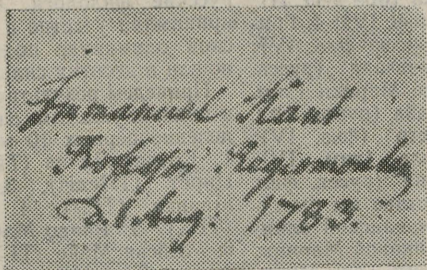 Immanuel Kant
Professor Regiomontan
d. 1 Aug: 1783.